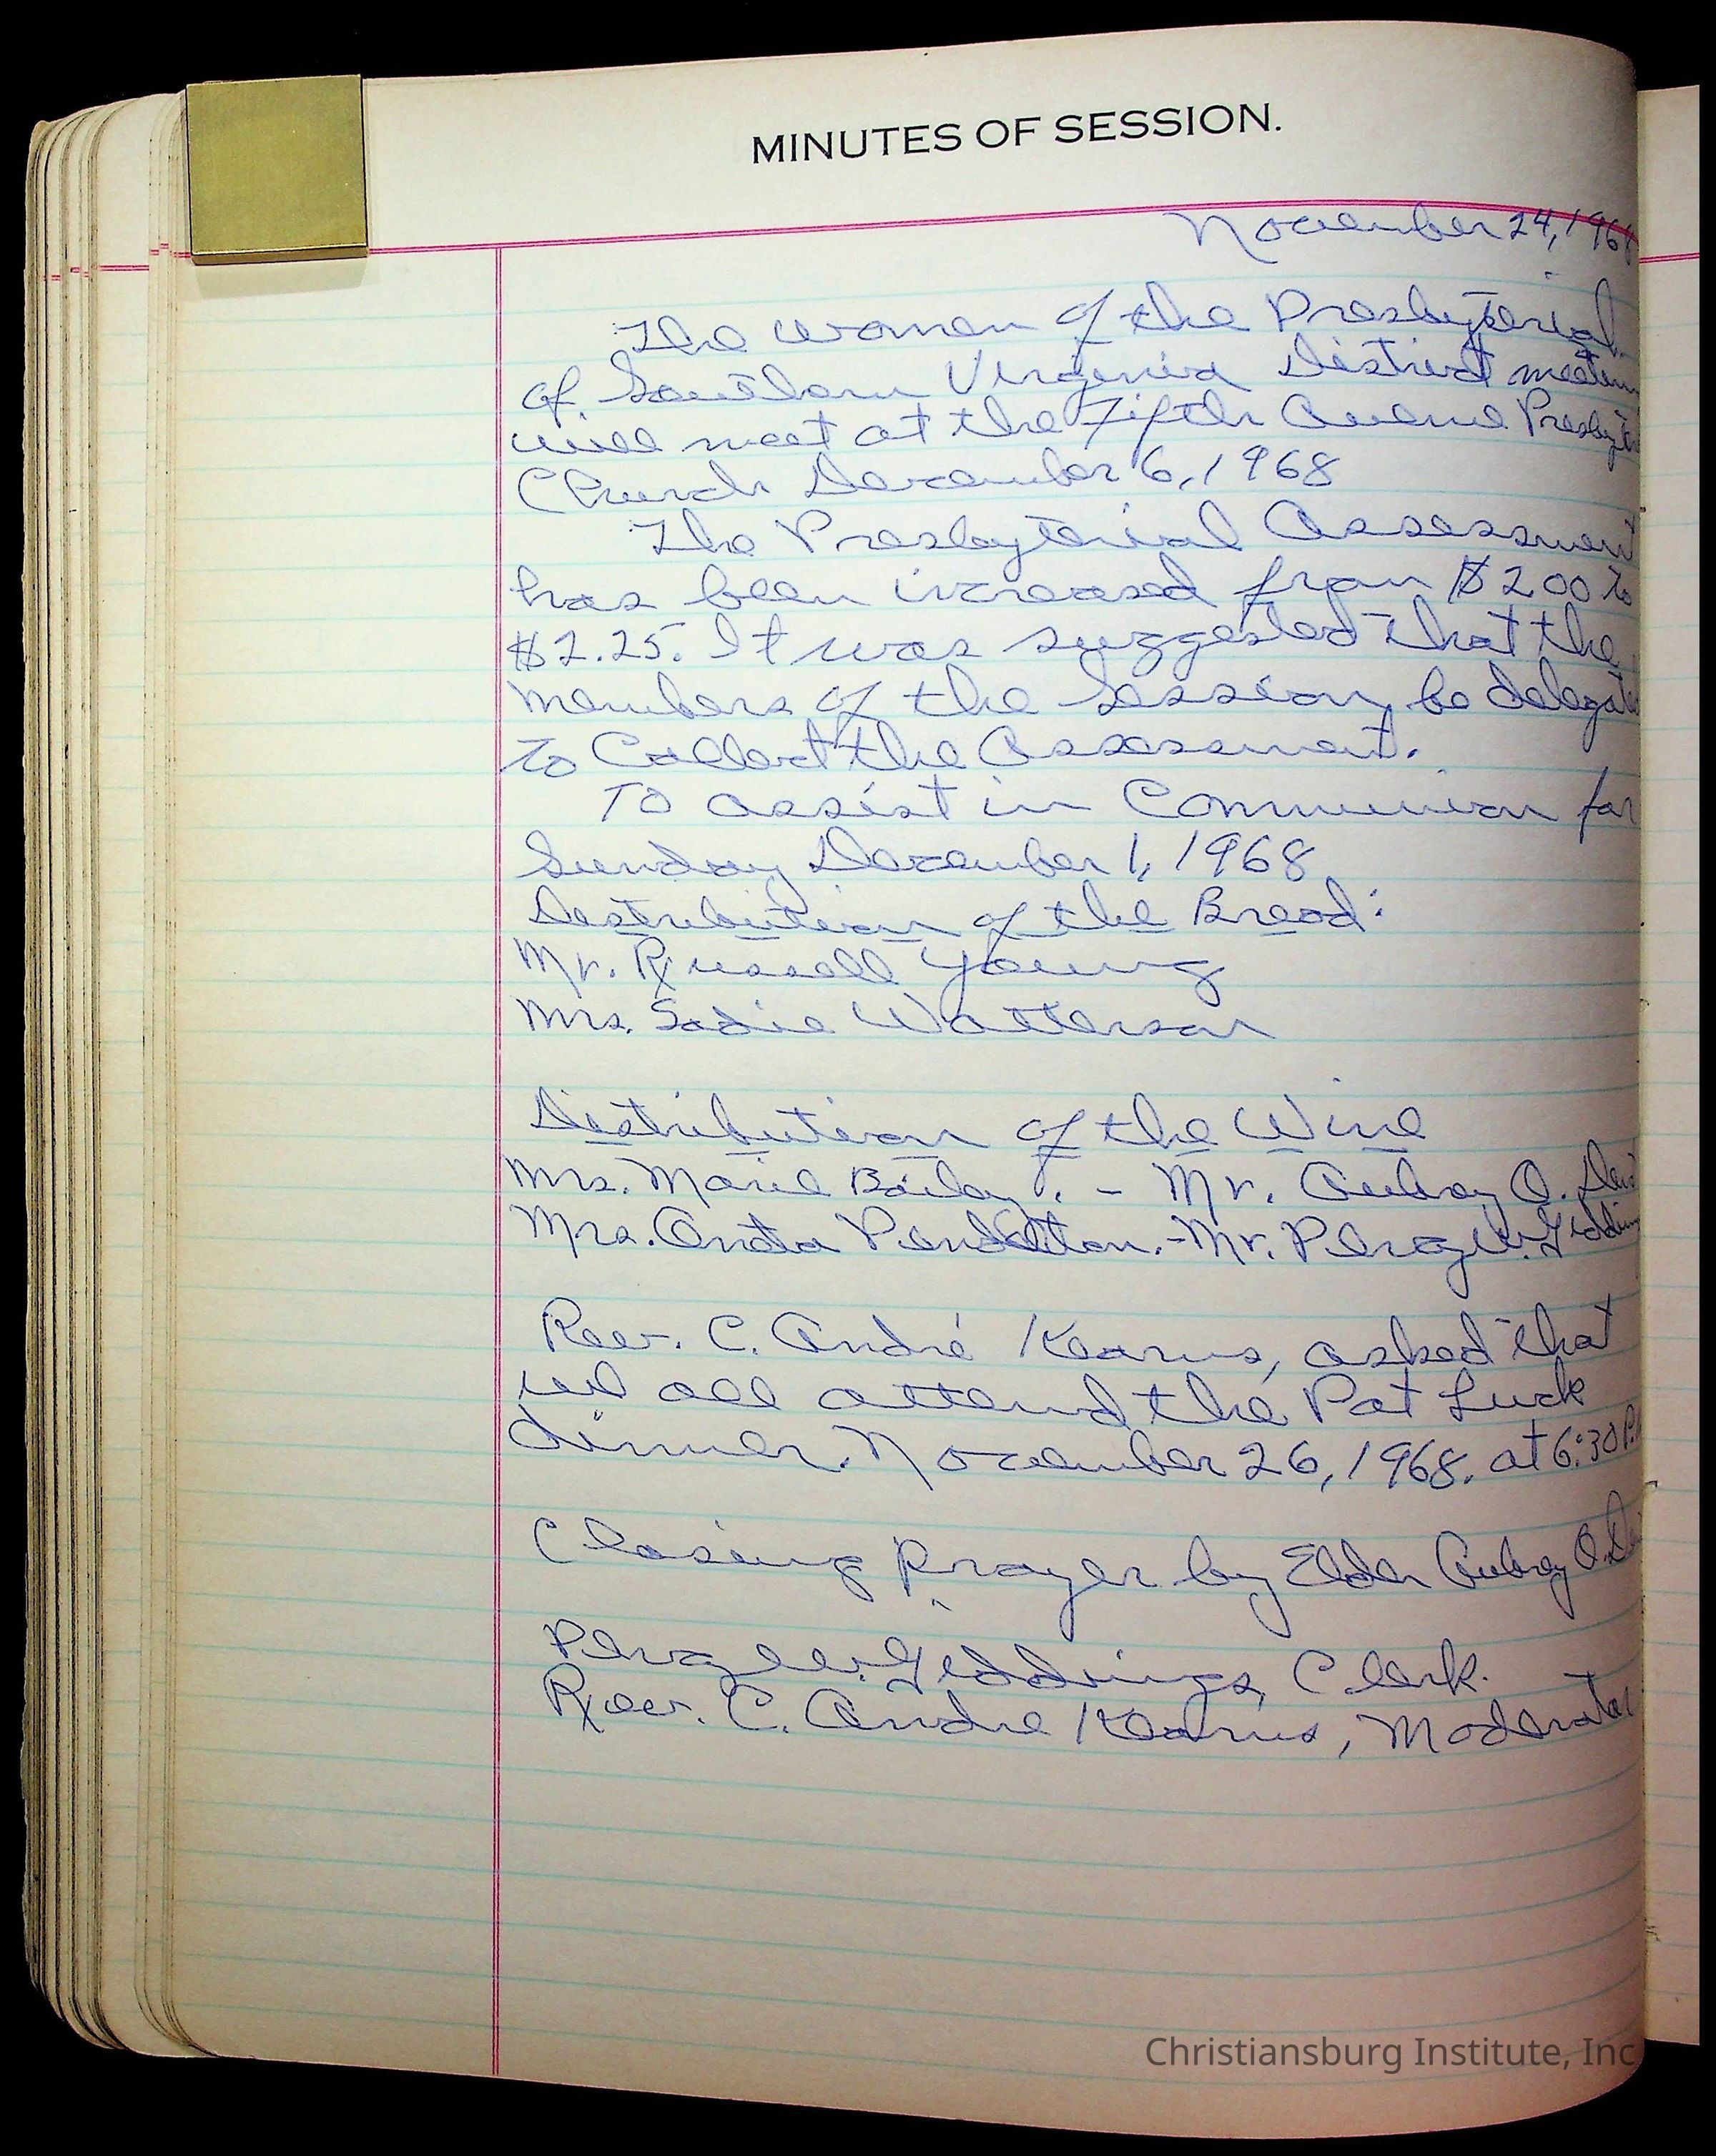 MINUTES OF SESSION.
November 24, 1968
The Women of the Presbyterial
of Southern Virginia District meeting
will meet at the Fifth Avenue Presbyter
Church December 6, 1968
The Presbyterial Assessment
has been increased from $200 to
$2.25. It was suggested that the
members of the Session be delegated
to Collect the Assessment.
To assist in Communion for
Sunday December 1, 1968
Distribution of the Bread:
Mr. Russell Young
Mrs. Sadie Watterson
Distribution of the Wine
Mrs. Marie Bailey. - Mr. Aubray O.
Mrs. Pendelton. - Mr. Percy W. Giddings
Rev. C. André Kearns, asked that
we all attend the Pot Luck
dinner. November 26, 1968. at 6:30 P.M
Closing Prayer by Elder Aubray O.
Percy W. Giddings, Clerk.
Rev. C. Andre Kearns, Moderator
Christiansburg Institute, Inc